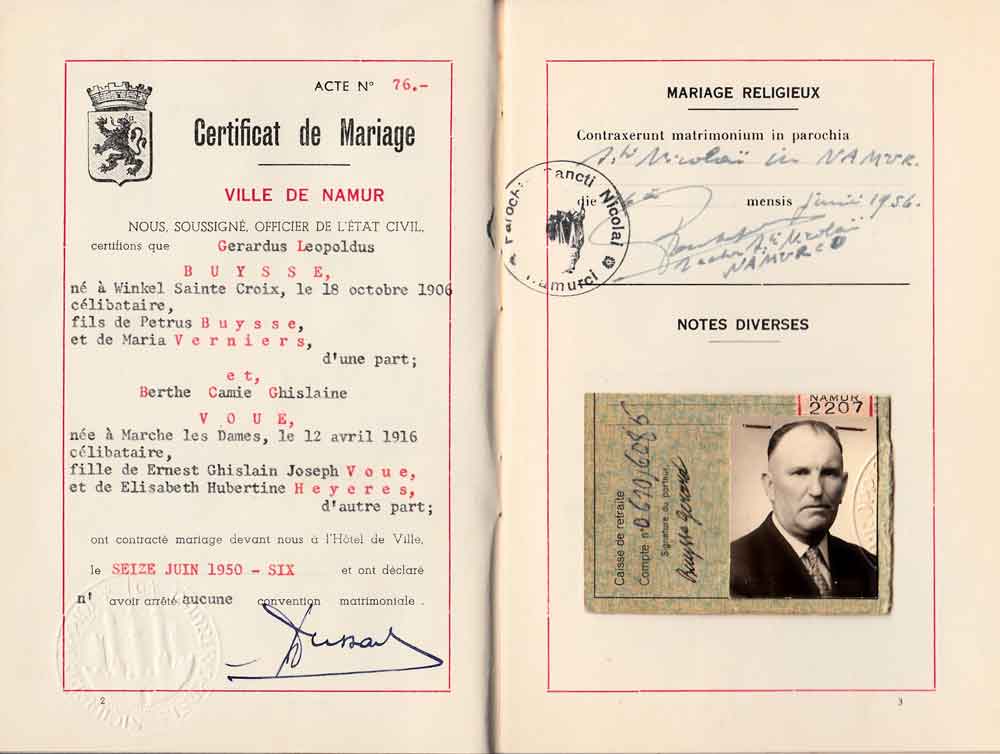 ACTE N° 76.-
Certificat de Mariage
VILLE DE NAMUR
NOUS, SOUSSIGNÉ, OFFICIER DE L'ÉTAT CIVIL,
certifions que Gerardus Leopoldus
BUYSSE,
né à Winkel Sainte Croix, le 18 octobre 1906
célibataire,
fils de Petrus Buysse,
et de Maria Verniers,
d'une part;
et,
Berthe Camie Ghislaine
VOUE,
née à Marche les Dames, le 12 avril 1916
célibataire,
fille de Ernest Ghislain Joseph Voue,
et de Elisabeth Hubertine Heyeres,
d'autre part;
ont contracté mariage devant nous à l'Hôtel de Ville,
le SEIZE JUIN 1950 - SIX et ont déclaré
n' avoir arrêté aucune convention matrimoniale.
2
MARIAGE RELIGIEUX
Contraxerunt matrimonium in parochia
Sti Nicolaï in NAMUR.
die mensis junii 1956.
Sti Nicolaï
NAMURCI
Parochia Sancti Nicolai
Namurci
NOTES DIVERSES
NAMUR
2207
Caisse de retraite
Compte n°
Signature du porteur
Buysse Gerard
3